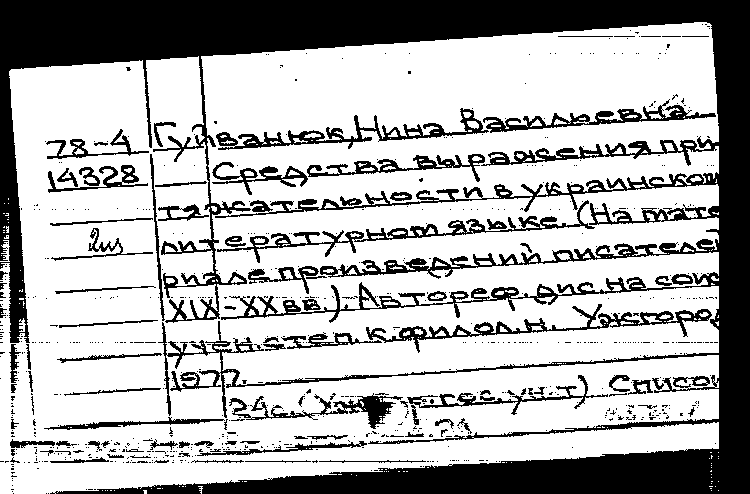 78-4 Гуйванюк, Нина Васильевна.
14328 Средства выражения при-
тяжательности в украинском
2из литературном языке. (На мате-
риале произведений писателей
XIX-XX вв.). Автореф. дис. на соиск
учен. степ. к. филол. н. Ужгород,
1977.
24с. гос. ун-т) Список